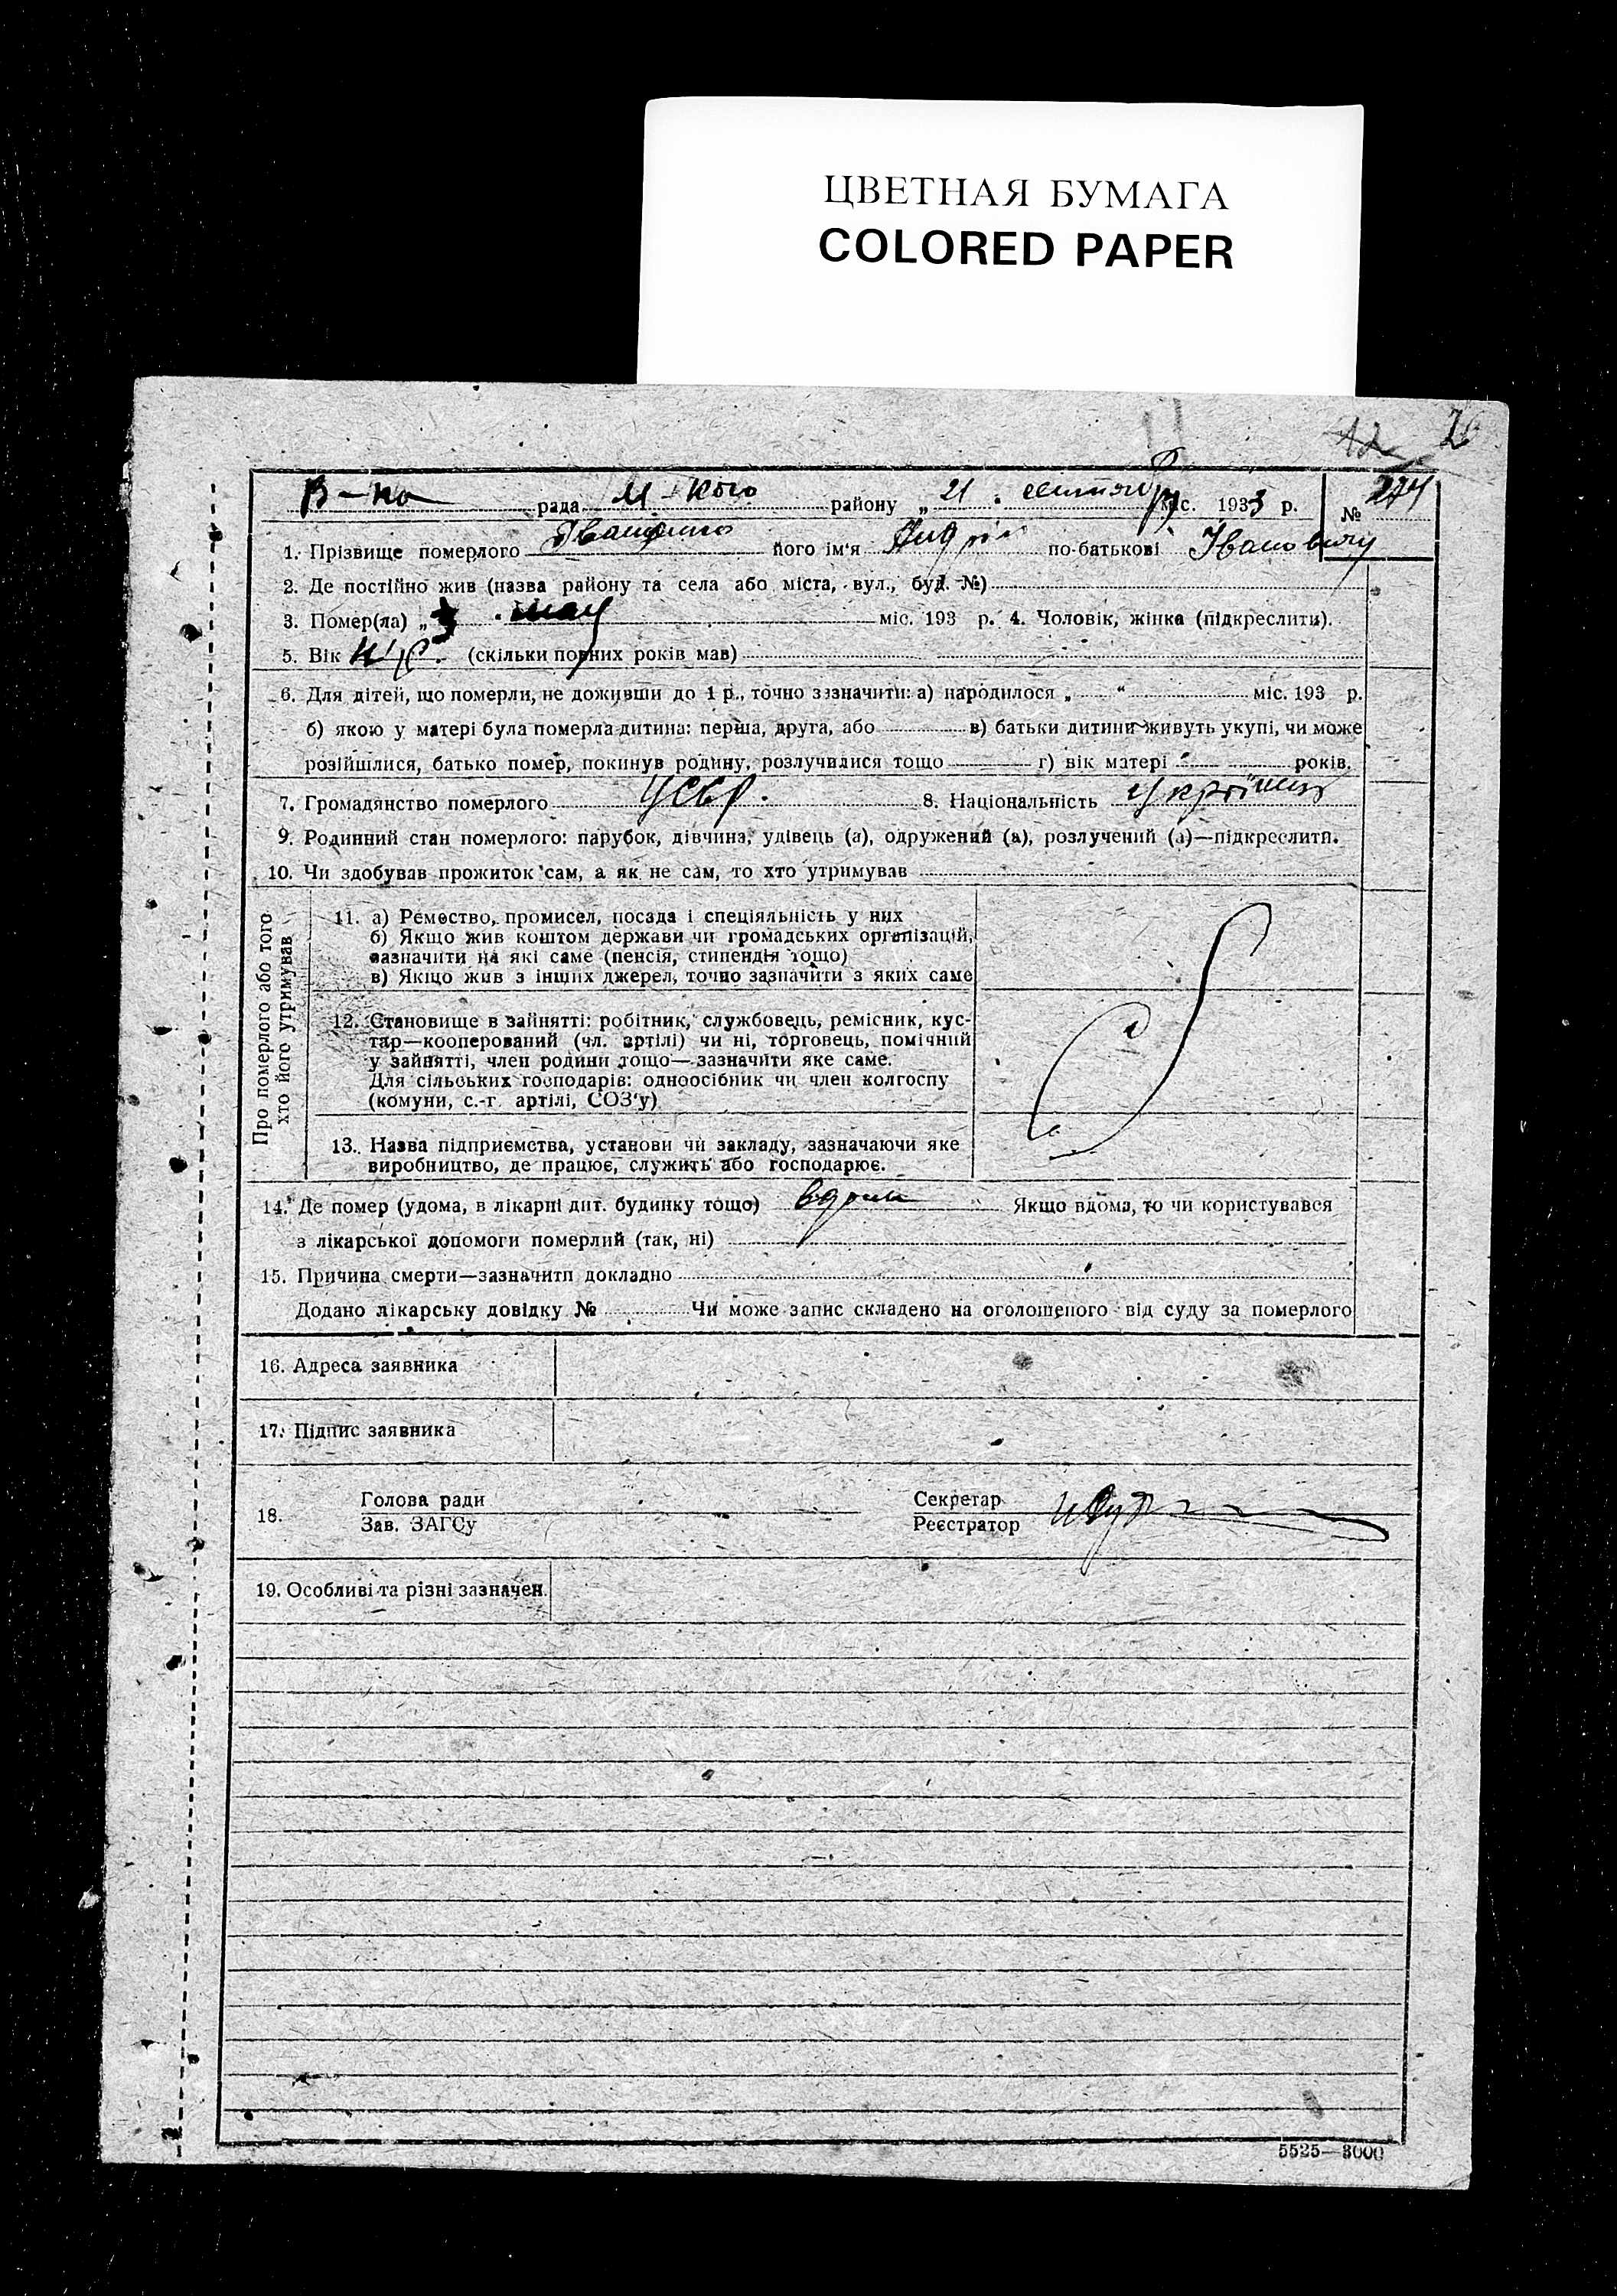 ЦВЕТНАЯ БУМАГА
COLORED PAPER
12 26
В-ка рада М-кого району „ 21 " міс. 1933 р. № 274
1. Прізвище померлого Іващенко його ім'я Андрій по-батькові Іванович
2. Де постійно жив (назва району та села або міста, вул., буд. №)
3. Помер(ла) „ 3 " мая міс. 193 р. 4. Чоловік, жінка (підкреслити).
5. Вік (скільки повних років мав)
6. Для дітей, що померли, не доживши до 1 р., точно зазначити: а) народилося „ " міс. 193 р.
б) якою у матері була померла дитина: перша, друга, або в) батьки дитини живуть укупі, чи може
розійшлися, батько помер, покинув родину, розлучилися тощо г) вік матері років.
7. Громадянство померлого УССР. 8. Національність Украінец
9. Родинний стан померлого: парубок, дівчина, удівець (а), одружений (а), розлучений (а)—підкреслити.
10. Чи здобував прожиток сам, а як не сам, то хто утримував
Про померлого або того
хто його утримував
11. а) Ремество, промисел, посада і спеціяльність у них
б) Якщо жив коштом держави чи громадських організацій,
зазначити на які саме (пенсія, стипендія тощо)
в) Якщо жив з інших джерел, точно зазначити з яких саме
12. Становище в зайнятті: робітник, службовець, ремісник, кус-
тар—кооперований (чл. артілі) чи ні, торговець, помічний
у зайнятті, член родини тощо—зазначити яке саме.
Для сільських господарів: одноосібник чи член колгоспу
(комуни, с.-г. артілі, СОЗ'у)
13. Назва підприємства, установи чи закладу, зазначаючи яке
виробництво, де працює, служить або господарює.
14. Де помер (удома, в лікарні дит. будинку тощо) вдома Якщо вдома, то чи користувався
з лікарської допомоги померлий (так, ні)
15. Причина смерти—зазначити докладно
Додано лікарську довідку № Чи може запис складено на оголошеного від суду за померлого
16. Адреса заявника
17. Підпис заявника
18. Голова ради Секретар
Зав. ЗАГСу Реєстратор
19. Особливі та різні зазначен.
5525—3000